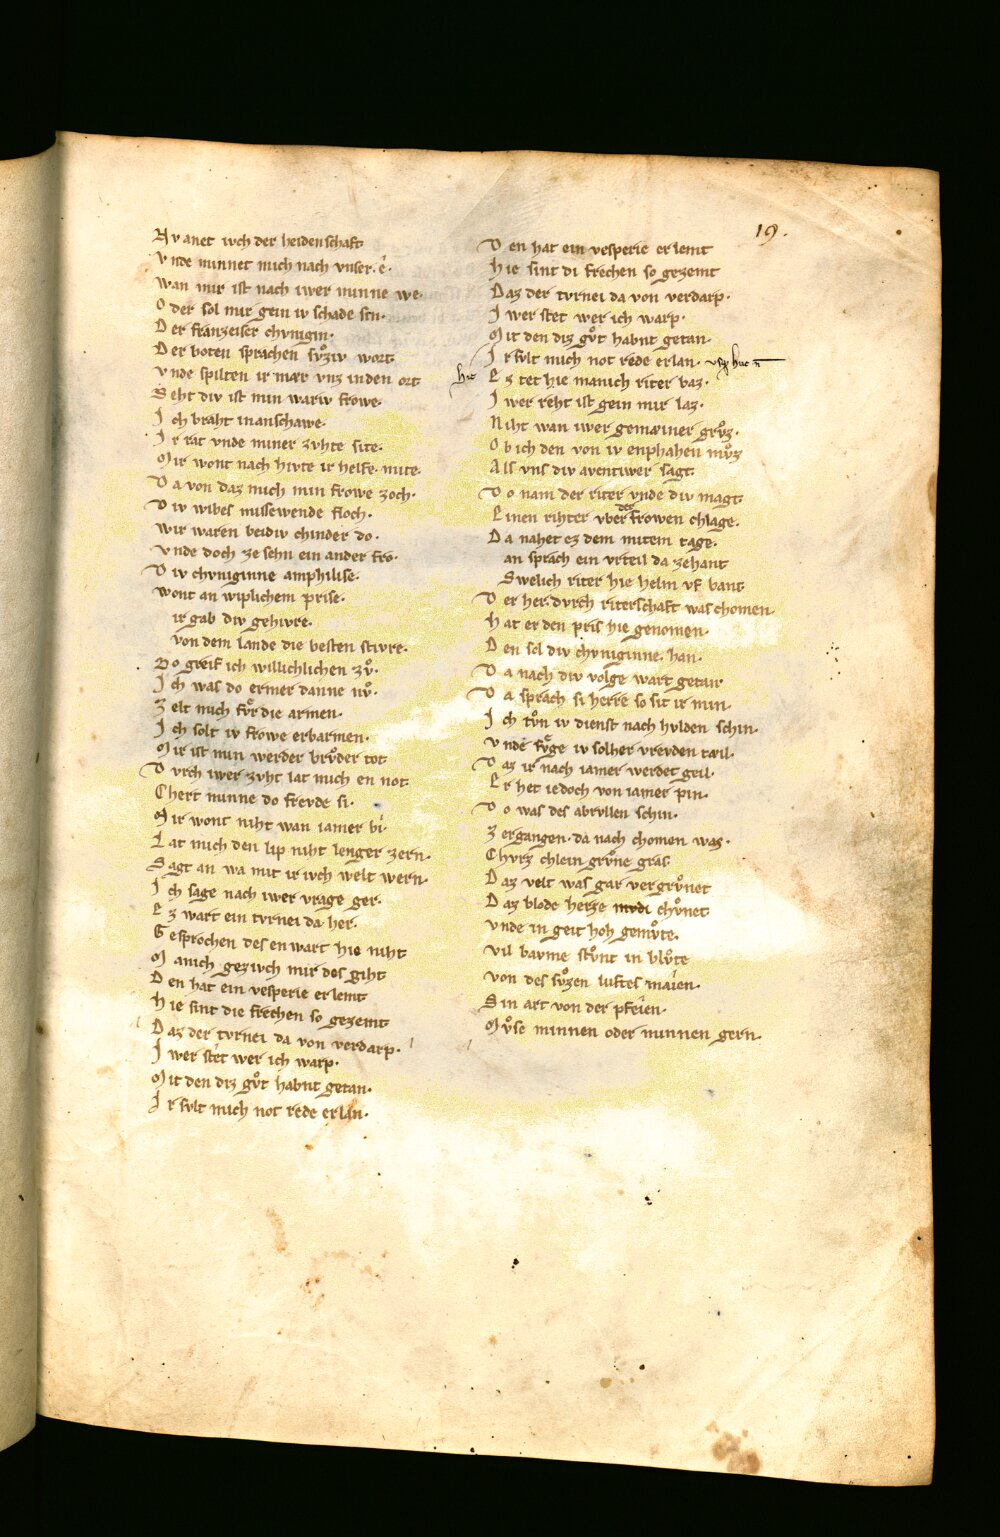 19.
Nv anet ivch der heidenschaft
Vnde minnet mich nach vnser. ê.
Wan mir ist nach iwer minne we.
Oder sol mir gein iv schade sin.
Der franzeiser chvnigin.
Der boten sprachen sv̊ziv wort
Vnde spilten ir mær vnz in den ort
Seht div ist min wariv frowe.
Ich braht in anschawe.
Ir rat vnde miner zvhte site.
Mir wont nach hivte ir helfe mite.
Da von daz mich min frowe zoch.
Div wibes missewende floch.
Wir waren beidiv chinder do.
Vnde doch ze sehn ein ander fro.
Div chvniginne amphilise.
Wont an wiplichem prise.
ir gab div gehivre.
von dem lande die besten stivre.
Do greif ich willichlichen zv̊.
Ich was do ermer danne nv̊.
Zelt mich fv̊r die armen.
Ich solt iv frowe erbarmen.
Mir ist min werder brv̊der tot
Dvrch iwer zvht lat mich en not
Chert minne do frevde si.
Mir wont niht wan iamer bi.
Lat mich den lip niht lenger zern.
Sagt an wa mit ir ivch welt wern.
Ich sage nach iwer vrage ger.
Ez wart ein tvrnei da her.
Gesprochen des en wart hie niht
Manich geziveh mir des giht
Den hat ein vesperie erlemt
Hie sint die frechen so gezemt
Daz der tvrnei da von verdarp.
Iwer stet wer ich warp.
Mit den diz gv̊t habnt getan.
Ir svlt mich not rede erlan.
Den hat ein vesperie erlemt
Hie sint di frechen so gezemt
Daz der tvrnei da von verdarp.
Iwer stet wer ich warp.
Mit den diz gv̊t habnt getan.
Ir svlt mich not rede erlan.
hic Ez tet hie manich riter baz.
Iwer reht ist gein mir laz.
Niht wan iwer gemæiner grv̊z.
Ob ich den von iv enphahen mv̊z
Als vns div aventiwer sagt
Do nam der riter vnde div magt
Einen rihter vber der frowen chlage.
Da nahet ez dem mitem tage.
an sprach ein vrteil da zehant
Swelich riter hie helm vf bant
Der her dvrch riterschaft was chomen
Hat er den pris hie genomen.
Den sol div chvniginne han.
Da nach div volge wart getan
Da sprach si herre so sit ir min.
Ich tv̊n iv dienst nach hvlden schin.
Vnde fv̊ge iv solher vrevden tæil.
Daz ir nach iamer werdet geil.
Er het iedoch von iamer pin.
Do was des abrvllen schin.
Zergangen. da nach chomen was.
Chvrz chlein grv̊ne gras
Daz velt was gar vergrv̊net
Daz blode herze chv̊net
Vnde in geit hoh gemv̊te.
Vil bavme stv̊nt in blv̊te
Von des sv̊zen luftes maien.
Sin art von der pfeien.
Mv̊se minnen oder minnen gern.